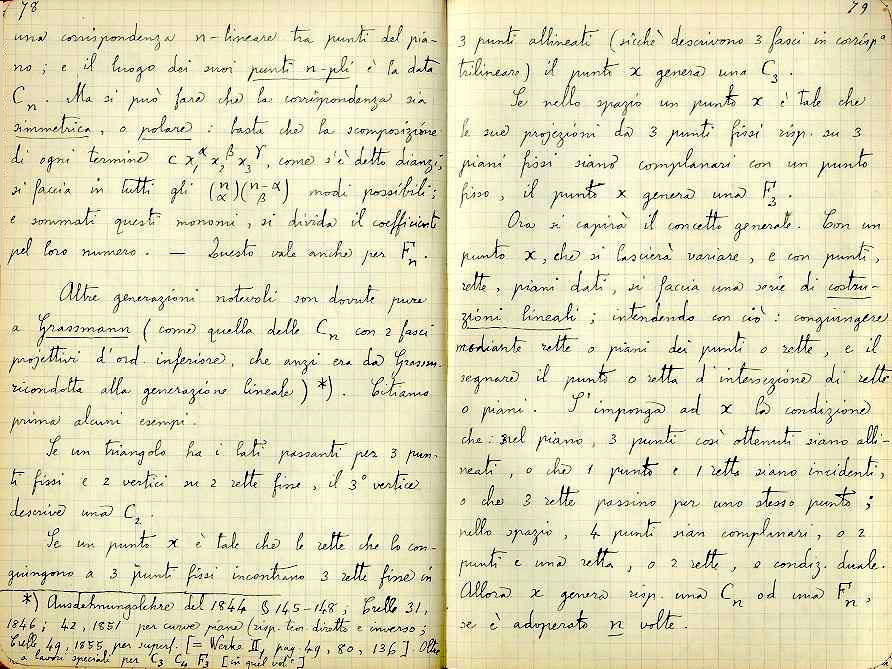 78
una corrispondenza n-lineare tra punti del pia-
no; e il luogo dei suoi punti n-pli è la data
Cn. Ma si può fare che la corrispondenza sia
simmetrica, o polare: basta che la scomposizione
di ogni termine c x₁^α x₂^β x₃^γ, come s'è detto dianzi,
si faccia in tutti gli (n α)(n-α β) modi possibili;
e sommati questi monomi, si divida il coefficiente
pel loro numero. — Questo vale anche per Fn.
Altre generazioni notevoli son dovute pure
a Grassmann (come quella delle Cn con 2 fasci
projettivi d'ord. inferiore, che anzi era da Grassm.
ricondotta alla generazione lineale) *). Citiamo
prima alcuni esempi.
Se un triangolo ha i lati passanti per 3 pun-
ti fissi e 2 vertici su 2 rette fisse, il 3° vertice
descrive una C₂.
Se un punto x è tale che le rette che lo con-
giungono a 3 punti fissi incontrano 3 rette fisse in
*) Ausdehnungslehre del 1844 § 145-148; Crelle 31,
1846; 42, 1851 per curve piane (risp. teor. diretto e inverso;
Crelle 49, 1855, per superf. [= Werke II, pag. 49, 80, 136]. Oltre
a lavori speciali per C₃ C₄ F₃ [in quel vol.]
79
3 punti allineati (sicchè descrivono 3 fasci in corrispᵃ
trilineare) il punto x genera una C₃.
Se nello spazio un punto x è tale che
le sue projezioni da 3 punti fissi risp. su 3
piani fissi siano complanari con un punto
fisso, il punto x genera una F₃.
Ora si capirà il concetto generale. Con un
punto x, che si lascierà variare, e con punti,
rette, piani dati, si faccia una serie di costru-
zioni lineali; intendendo con ciò: congiungere
mediante rette o piani dei punti o rette, e il
segnare il punto o retta d'intersezione di rette
o piani. S'imponga ad x la condizione
che: nel piano, 3 punti così ottenuti siano alli-
neati, o che 1 punto e 1 retta siano incidenti,
o che 3 rette passino per uno stesso punto;
nello spazio, 4 punti sian complanari, o 2
punti e una retta, o 2 rette, o condiz. duale.
Allora x genera risp. una Cn od una Fn,
se è adoperato n volte.